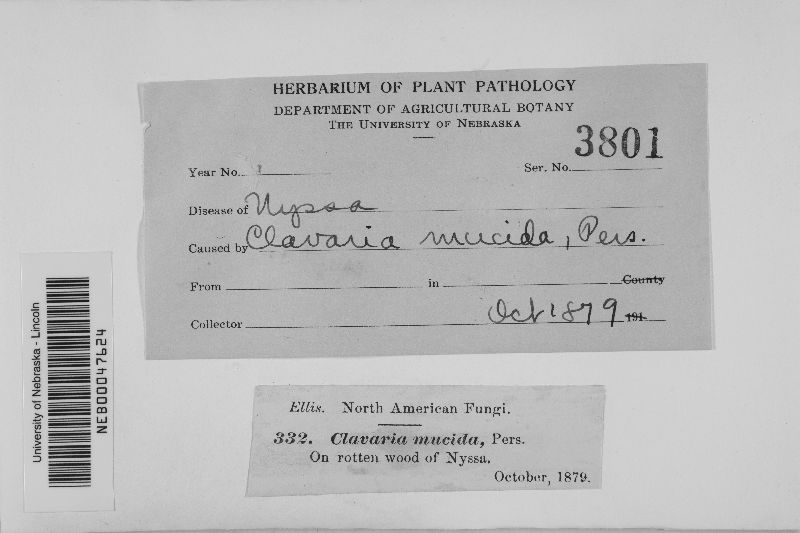 HERBARIUM OF PLANT PATHOLOGY
DEPARTMENT OF AGRICULTURAL BOTANY
THE UNIVERSITY OF NEBRASKA
3801
Year No. Ser. No.
Disease of Nyssa
Caused by Clavaria mucida, Pers.
From in County
Collector Oct 1879 191
University of Nebraska - Lincoln
NEB00047624
Ellis. North American Fungi.
332. Clavaria mucida, Pers.
On rotten wood of Nyssa.
October, 1879.